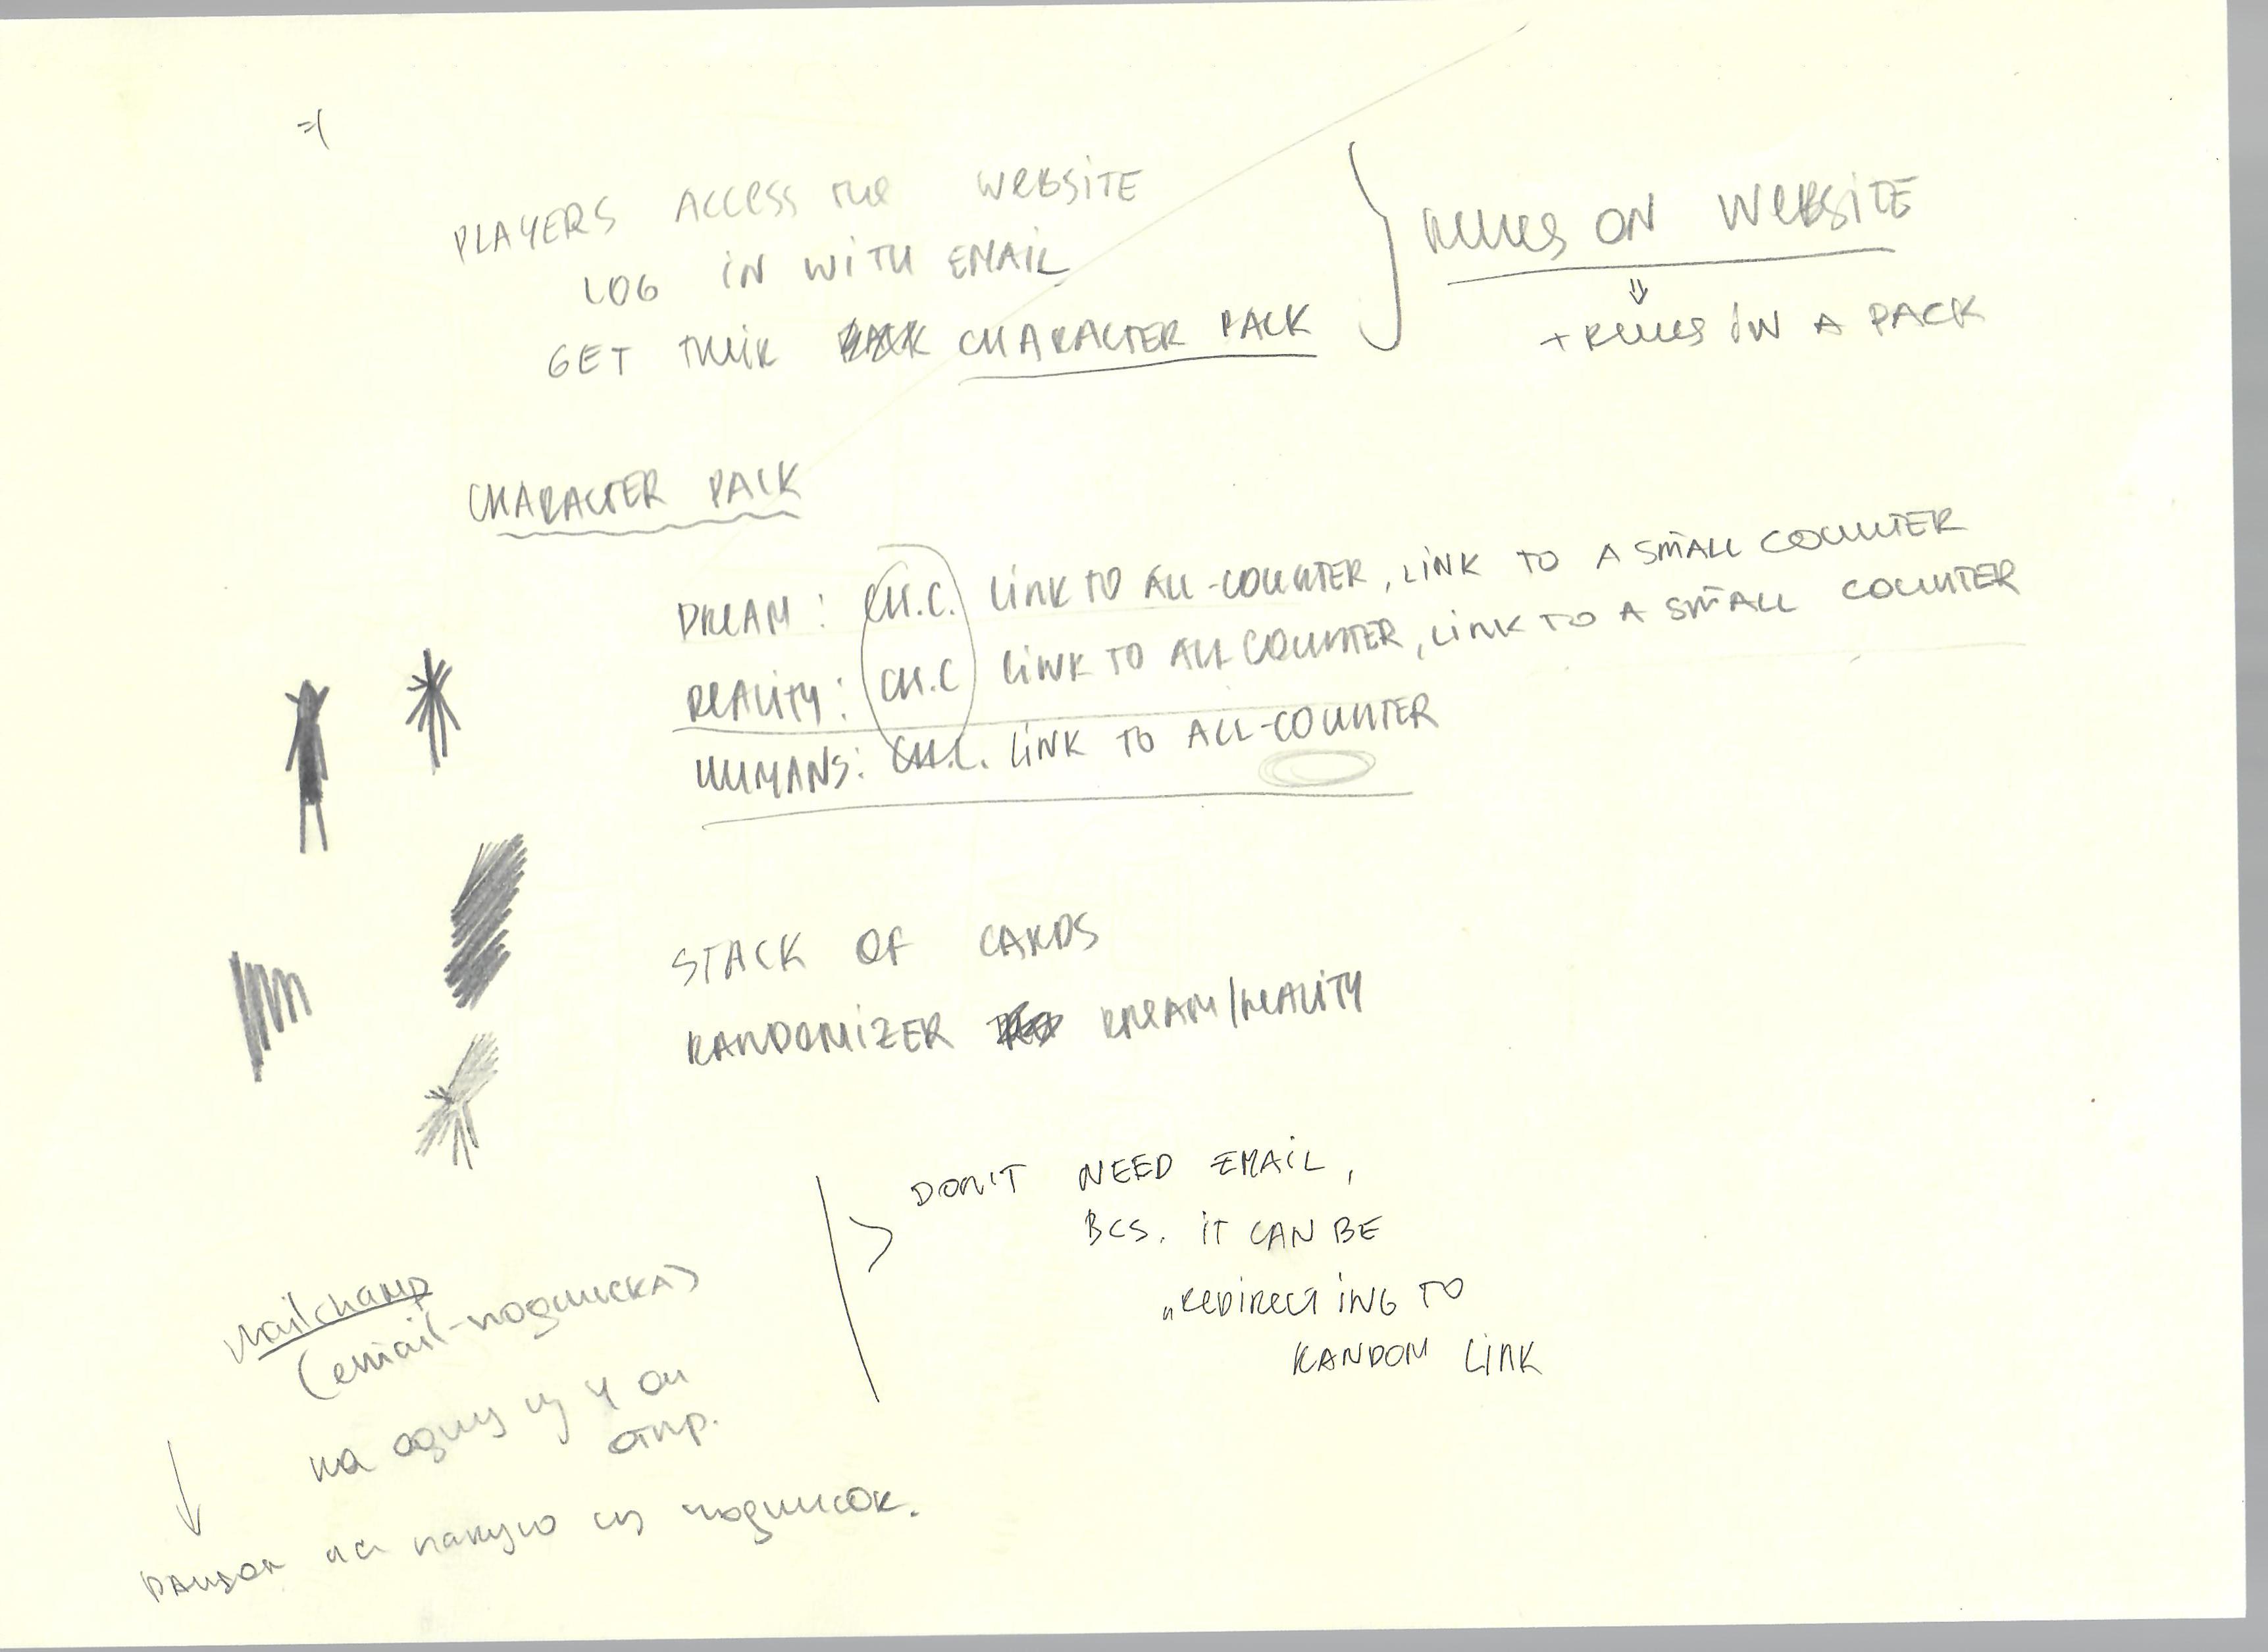 =(
PLAYERS ACCESS THE WEBSITE
LOG IN WITH EMAIL
GET THEIR CHARACTER PACK
RULES ON WEBSITE
⇓
+ RULES IN A PACK
CHARACTER PACK
DREAM: CH.C. LINK TO ALL-COUNTER, LINK TO A SMALL COUNTER
REALITY: CH.C LINK TO ALL COUNTER, LINK TO A SMALL COUNTER
HUMANS: CH.C. LINK TO ALL-COUNTER
STACK OF CARDS
RANDOMIZER DREAM/REALITY
DON'T NEED EMAIL,
BCS. IT CAN BE
„REDIRECTING TO
RANDOM LINK
Mailchamp
(email-подписка)
на одну из 4 он
отпр.
рандом на какую из подписок.